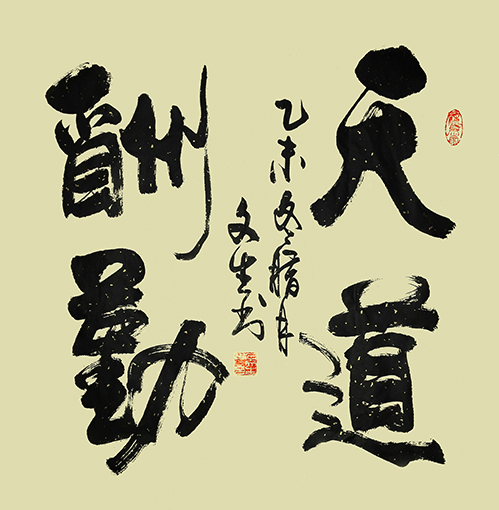 天道
酬勤
乙未冬腊月
文生书